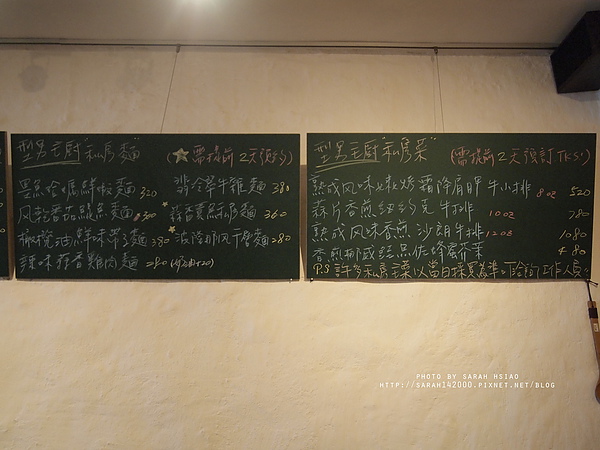 型男主廚"私房麵" (需提前2天預約)
墨魚哈嗎鮮蝦麵 320 翡冷翠牛雜麵 380
風乾番茄鯷魚麵 300 蒜香 麵 360
橄欖油鮮味帶子麵 380 波隆那風丁骨麵 280
辣味蒜香雞肉麵 280 (奶油+20)
型男主廚"私房菜" (需提前2天預訂 TKS!)
熟成風味 烤霜降肩胛牛小排 8oz 520
蒜片香煎紐約克牛排 10oz 780
熟成風味香煎沙朗牛排 12oz 1080
香煎挪威鮭魚佐蜂蜜芥茉 480
P.S 許多私房菜以當日採買為準。洽詢工作人員。
PHOTO BY SARAH HSIAO
HTTP://SARAH142000.PIXNET.NET/BLOG